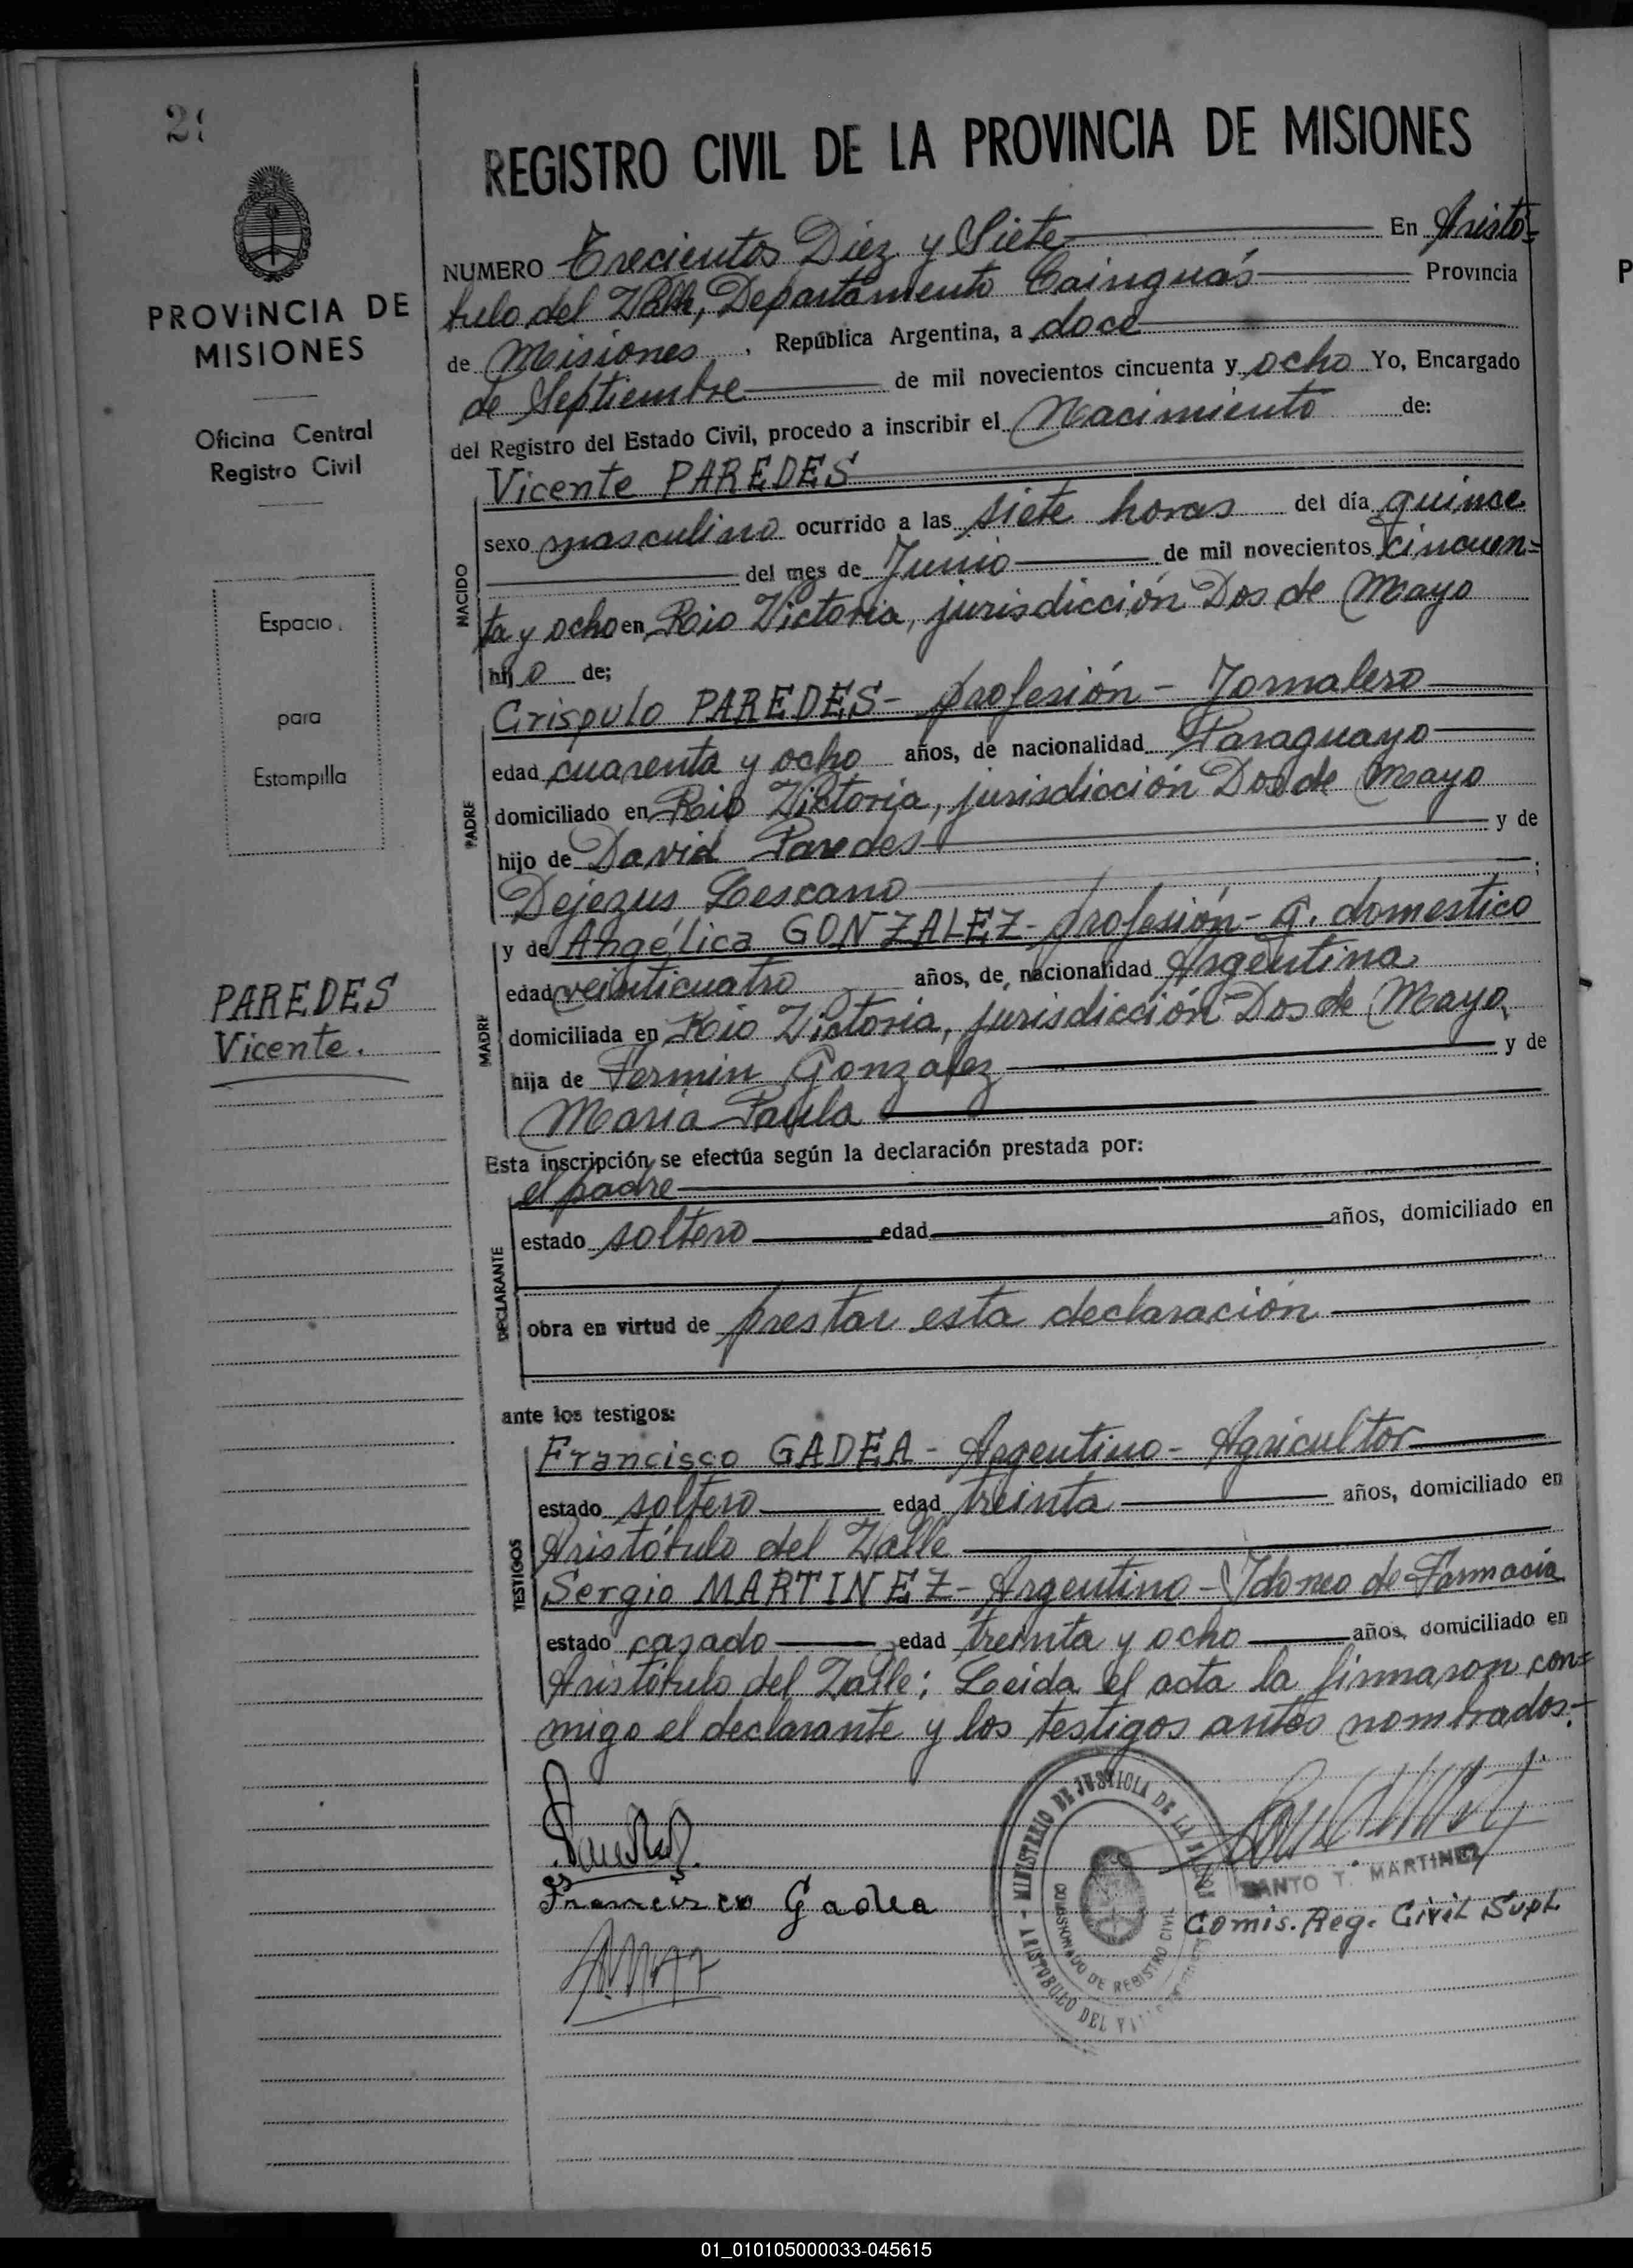 REGISTRO CIVIL DE LA PROVINCIA DE MISIONES
PROVINCIA DE
MISIONES
Oficina Central
Registro Civil
Espacio
para
Estampilla
PAREDES
Vicente.
NUMERO Trecientos Diez y Siete En Aristó=
bulo del Valle, Departamento Cainguás Provincia
de Misiones, República Argentina, a doce
de Septiembre de mil novecientos cincuenta y ocho Yo, Encargado
del Registro del Estado Civil, procedo a inscribir el Nacimiento de:
NACIDO
Vicente PAREDES
sexo masculino ocurrido a las siete horas del día quince
del mes de Junio de mil novecientos cincuen=
ta y ocho en Rio Victoria, jurisdicción Dos de Mayo
hijo de;
PADRE
Crispulo PAREDES- profesión - Jornalero
edad cuarenta y ocho años, de nacionalidad Paraguayo
domiciliado en Rio Victoria, jurisdicción Dos de Mayo
hijo de David Paredes y de
Dejezus Lescano ;
MADRE
y de Angélica GONZALEZ- profesión- q. domestico
edad veinticuatro años, de nacionalidad Argentina
domiciliada en Rio Victoria, jurisdicción Dos de Mayo,
hija de Fermin Gonzalez y de
Maria Paula
Esta inscripción se efectúa según la declaración prestada por:
DECLARANTE
el padre
estado soltero edad años, domiciliado en
obra en virtud de prestar esta declaración
ante los testigos:
TESTIGOS
Francisco GADEA - Argentino - Agricultor
estado soltero edad treinta años, domiciliado en
Aristóbulo del Valle
Sergio MARTINEZ- Argentino - Idoneo de Farmacia
estado casado edad treinta y ocho años, domiciliado en
Aristóbulo del Valle; Leida el acta la firmaron con=
migo el declarante y los testigos antes nombrados.-
Francisco Gadea
MINISTERIO DE JUSTICIA DE LA NACION
ARISTOBULO DEL VALLE
REGISTRO CIVIL
SANTO T. MARTINEZ
Comis. Reg. Civil Supl.
01_010105000033-045615